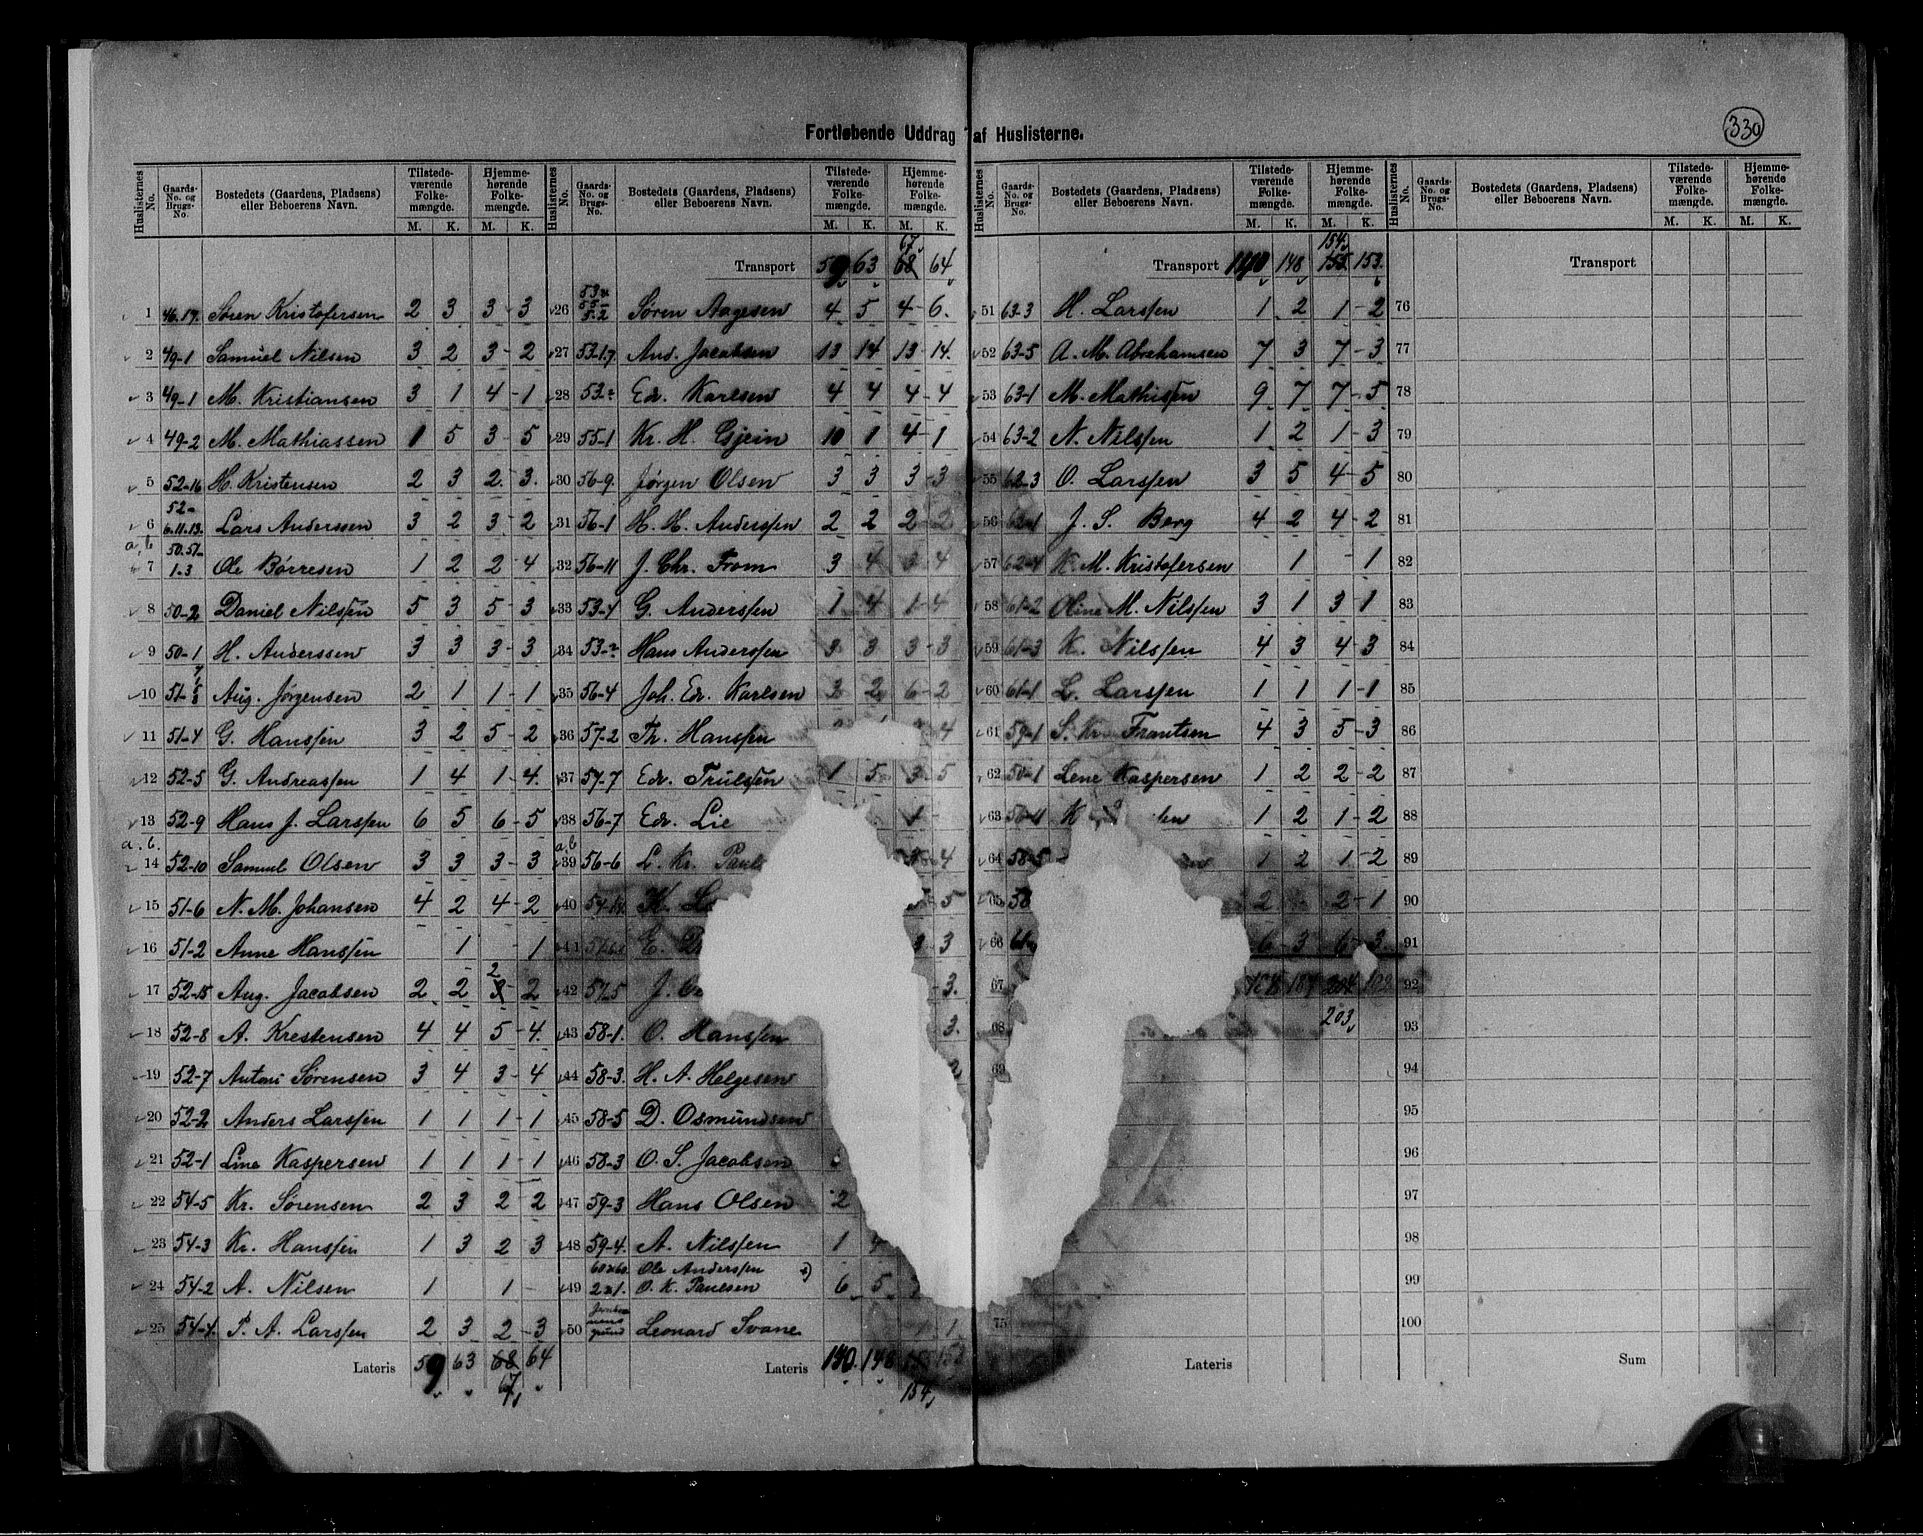 330
Fortløbende Uddrag af Huslisterne.
Huslisternes No. Gaards-No. og Brugs-No. Bostedets (Gaardens, Pladsens) eller Beboerens Navn. Tilstedeværende Folkemængde. M. K. Hjemmehørende Folkemængde. M. K.
1 46.17. Søren Kristofersen 2 3 3 - 3
2 49-1 Samuel Nilsen 3 2 3 - 2
3 49-1 M. Kristiansen 3 1 4 - 1
4 49-2 M. Mathiassen 1 5 3 - 5
5 52-16 H. Kristensen 2 3 2 - 3.
6 52- 6.11.13. Lars Anderssen 3 2 3 - 2
a, b
7 50.51- 1-3 Ole Børresen 1 2 2 - 4
8 50-2 Daniel Nilssen 5 3 5 - 3
9 50-1 H. Anderssen 3 3 3 - 3
10 51- Aug. Jørgensen 2 1 1 - 1
11 51-4 G. Hanssen 3 2 5 - 2
12 52-5 G. Andreassen 1 4 1 - 4.
13 52-9 Hans J. Larssen 6 5 6 - 5
a. b.
14 52-10 Samuel Olsen 3 3 3 - 3
15 51-6 N. M. Johansen 4 2 4 - 2
16 51-2 Anne Hanssen 1 - 1
17 52-15 Aug. Jacobsen 2 2 3 2 - 2
18 52-8 A. Krestensen 4 4 5 - 4.
19 52-7 Antoni Sørensen 3 4 3 - 4
20 52-2 Anders Larssen 1 1 1 - 1
21 52-1 Line Kaspersen 1 1 1 - 1
22 54-5 Kr. Sørensen 2 3 2 - 2
23 54-3 Kr. Hanssen 1 3 2 3
24 54-2 A. Nilsen 1 1 -
25 54-4. P. A. Larssen 2 3 2 - 3
Lateris 59 63 68 64
67
Huslisternes No. Gaards-No. og Brugs-No. Bostedets (Gaardens, Pladsens) eller Beboerens Navn. Tilstedeværende Folkemængde. M. K. Hjemmehørende Folkemængde. M. K.
67
Transport 59 63 68 64
26 Søren Aagesen 4 5 4 - 6.
27 53.1.7 And. Jacobsen 13 14 13 - 14.
28 53- Edv. Karlsen 4 4 4 - 4
29 55-1 Kr. H. Gjein 10 1 4 - 1
30 56-9. Jørgen Olsen 3 3 3 - 3
31 56-1 H. H. Anderssen 2 2 2 - 2
32 56-11 J. Chr. From 3 4 4
33 53-4 G. Anderssen 1 4 1 - 4
34 53- Hans Anderssen 3 3 3 - 3
35 56-4 Joh. Edv. Karlsen 3 2 6 - 2
36 57-2 Th. Hanssen 4
37 57-7 Edv. Trulssen 1 5 3 - 5
38 56-7 Edv. Lie 1 -
a, b
39 56-6 L. Kr. 3 - 4
40 5
41 E. 3
42 57.5 J. - 3.
43 58-1. O. Hanssen 3.
44 58-3. H. A. Helgesen 2
45 58-5 D. Osmundsen
46 58-3 O. S. Jacobsen
47 59-3 Hans Olsen 2
48 59-4. A. Nilssen 1
49 2 1. Ole Anderssen O. K. Paulsen 6 5
50 Leonard Svane 1.
Lateris 140. 148
154
Huslisternes No. Gaards-No. og Brugs-No. Bostedets (Gaardens, Pladsens) eller Beboerens Navn. Tilstedeværende Folkemængde. M. K. Hjemmehørende Folkemængde. M. K.
154
Transport 140 148 155 153.
51 63-3 H. Larssen 1 2 1 - 2
52 63-5 A. M. Abrahamsen 7 3 7 - 3
53 63-1 M. Mathissen 9 7 7 - 5
54 63-2 N. Nilssen 1 2 1 - 3
55 62-3 O. Larssen 3 5 4 - 5
56 J. S. Berg 4 2 4 - 2
57 62-4 K. M. Kristofersen 1 - 1
58 61-2 Oline M. Nilssen 3 1 3 1
59 61-3 K. Nilssen 4 3 4 - 3
60 61-1 L. Larssen 1 1 1 - 1
61 59-1 S. Kr. Frantsen 4 3 5 - 3
62 50-1 Lene Kaspersen 1 2 2 - 2
63 K 1 2 1 - 2
64 58-5 1 2 1 - 2
65 58 2 2 - 1
66 61 6 - 3 6 - 3.
67
203
68
69
75
Lateris
Huslisternes No. Gaards-No. og Brugs-No. Bostedets (Gaardens, Pladsens) eller Beboerens Navn. Tilstedeværende Folkemængde. M. K. Hjemmehørende Folkemængde. M. K.
Transport
76
77
78
79
80
81
82
83
84
85
86
87
88
89
90
91
92
93
94
95
96
97
98
99
100
Sum